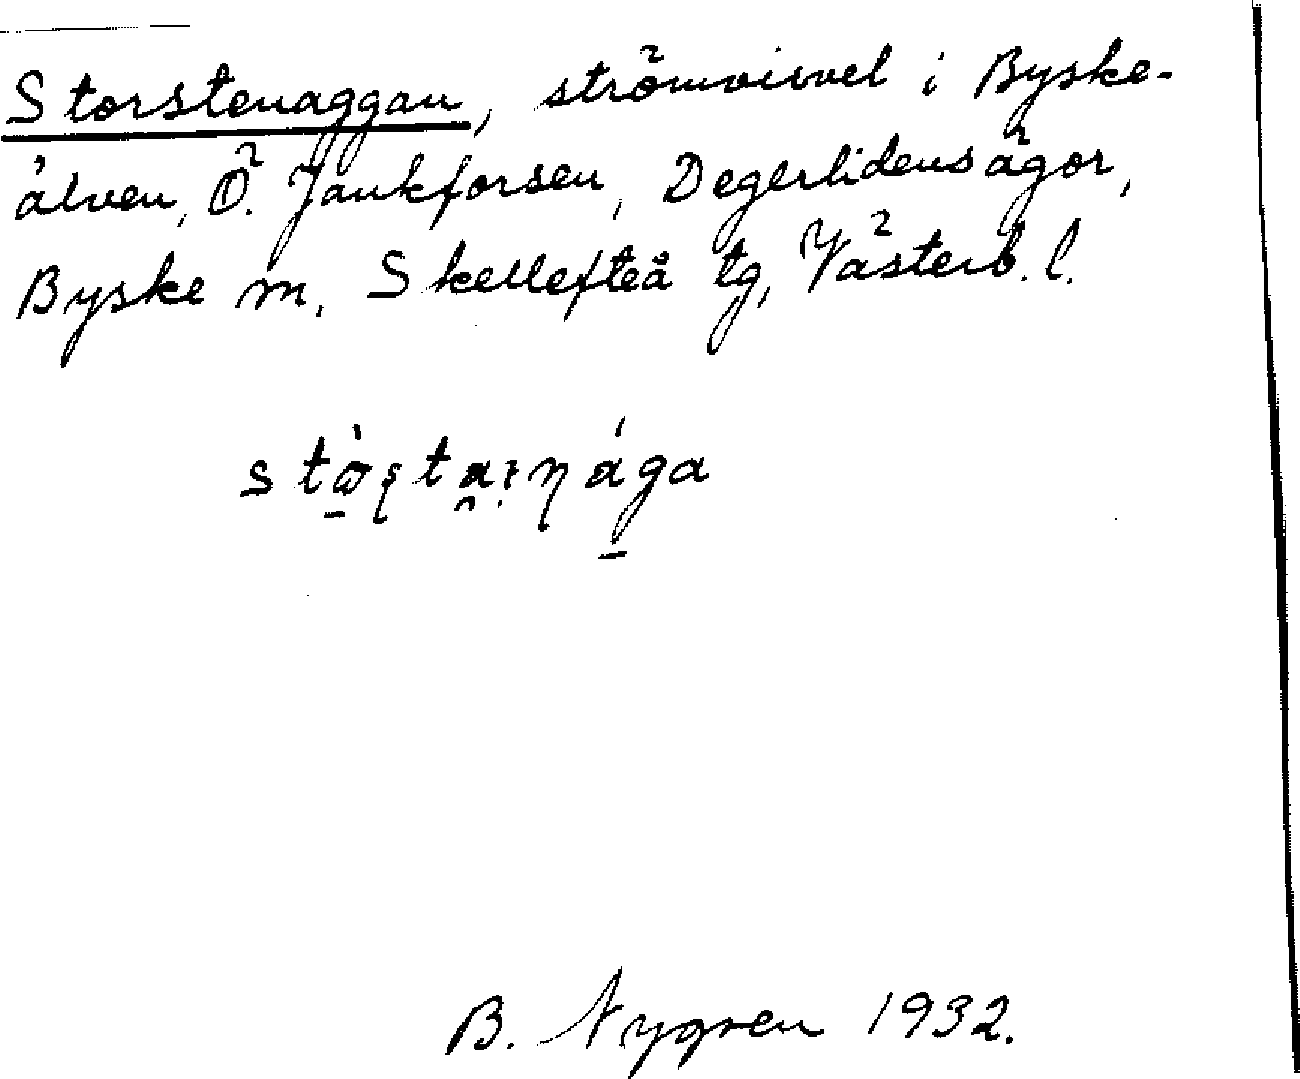 Storstenaggan, strömvirvel i Byske-
älven, Ö. Jankforsen, Degerlidens ägor,
Byske sn, Skellefteå tg, Västerb. l.
B. Nygren 1932.